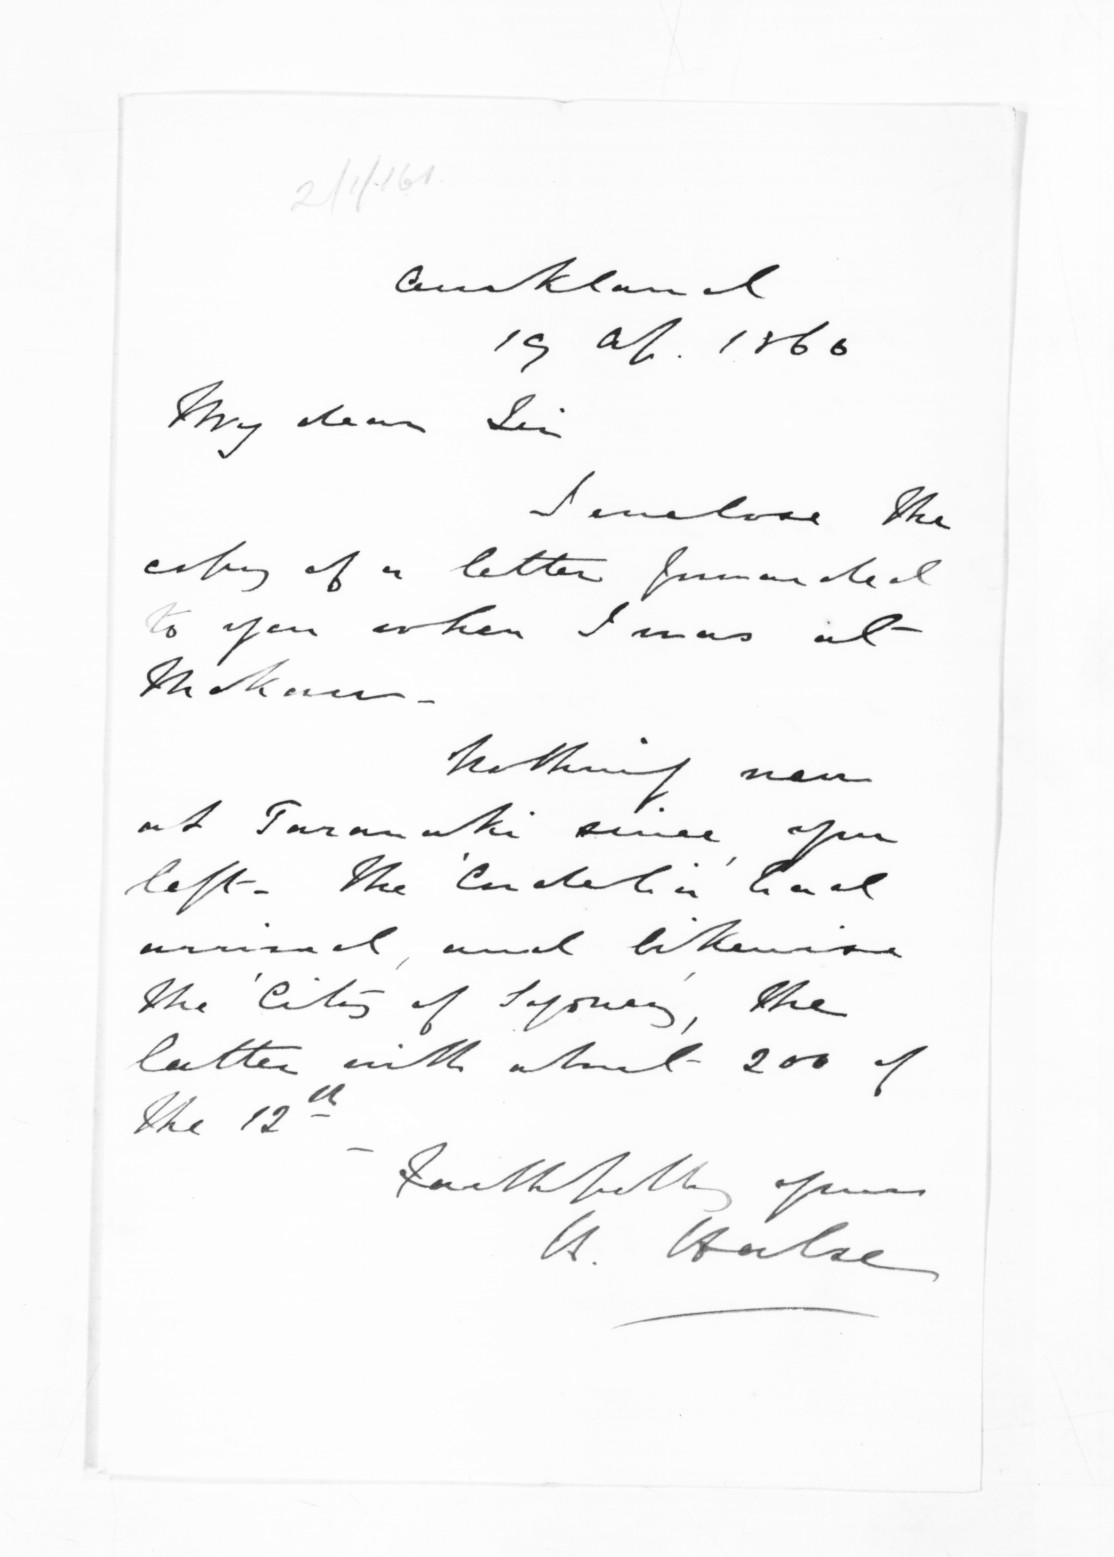 Auckland
19 Ap. 1860
My dear Sir
I enclose the
copy of a letter forwarded
to you when I was at
Mokau -
Nothing new
at Taranaki since, you
left - The 'Cordelia' had
arrived, and likewise
the 'City of Sydney', the
latter with about 200 of
the 12th -
Faithfully yours
H. Halse